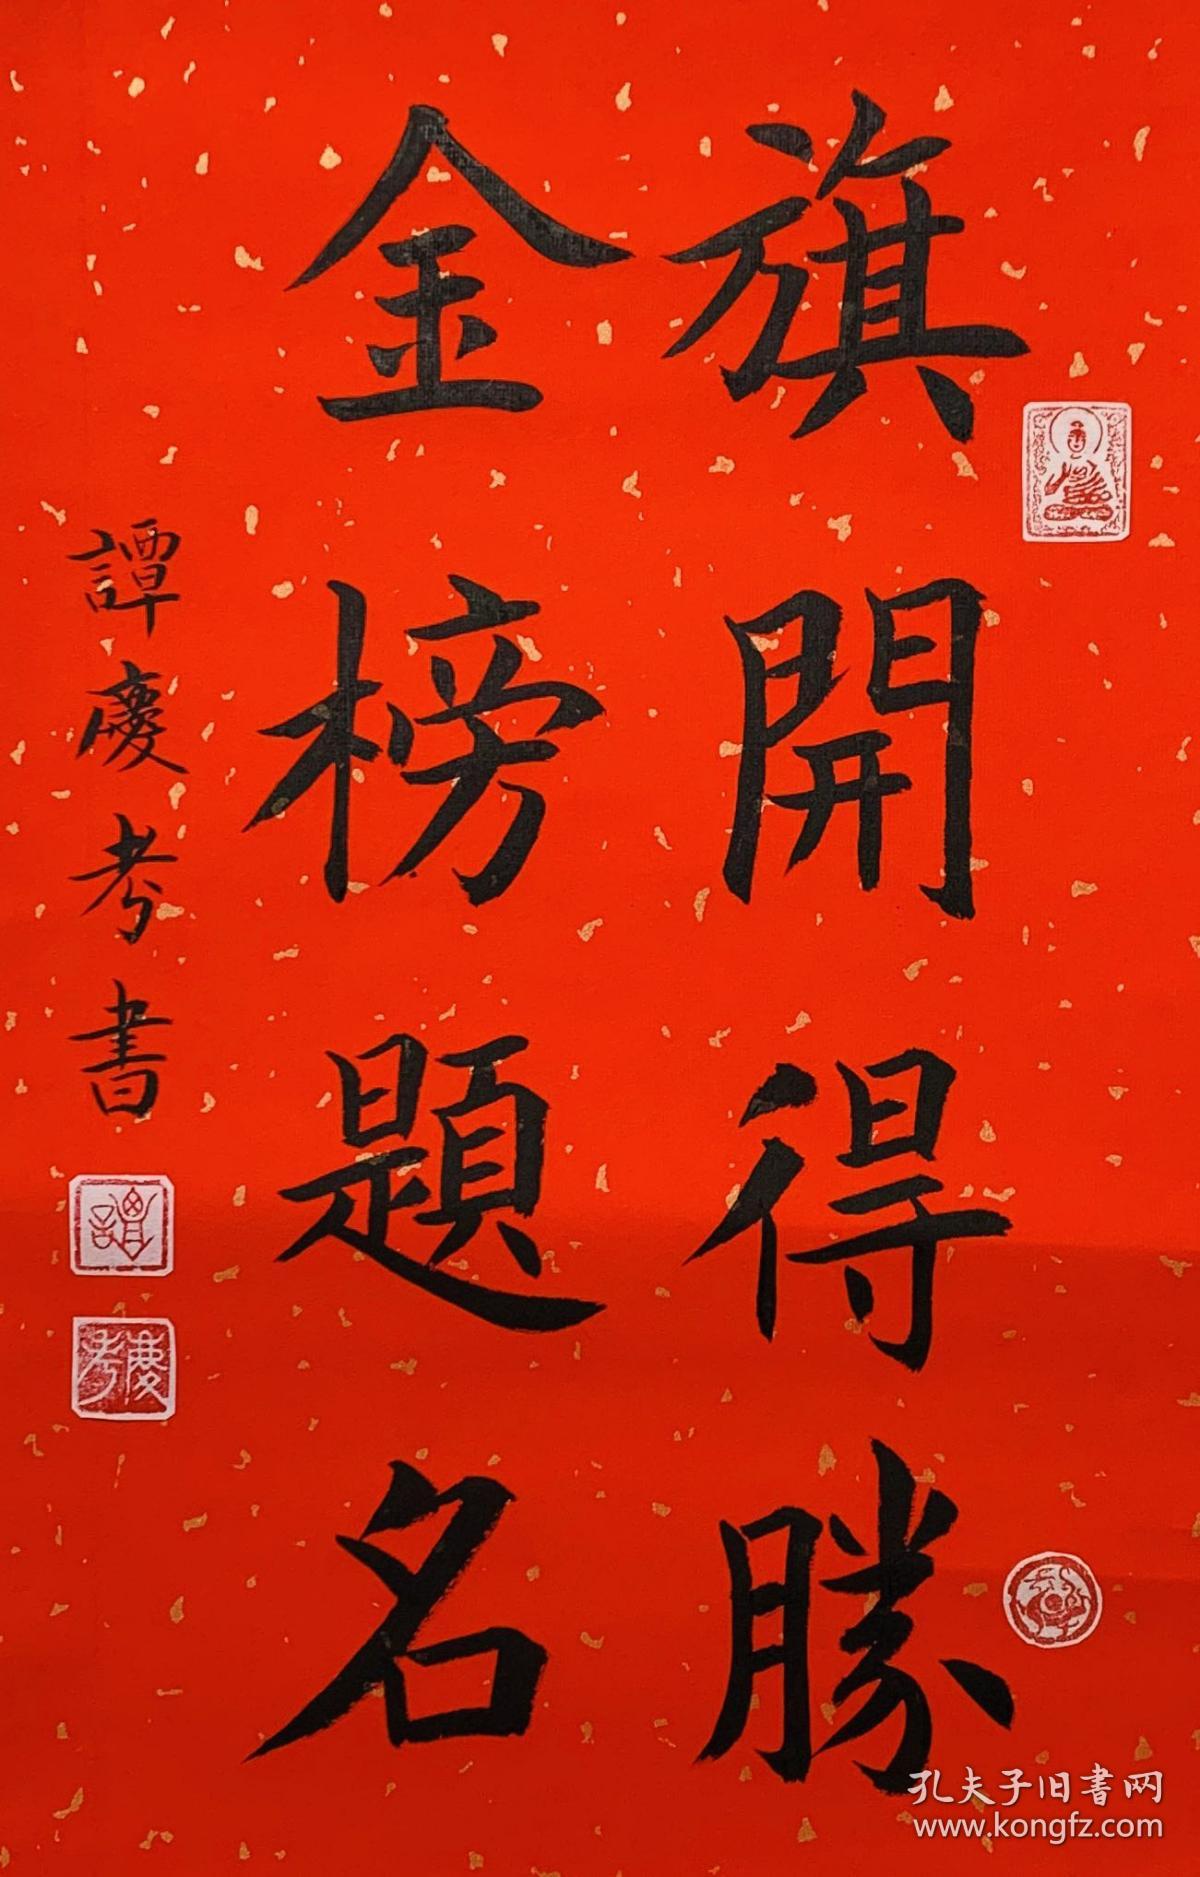 旗開得勝
金榜題名
譚慶考書
譚
慶考
孔夫子旧书网
www.kongfz.com